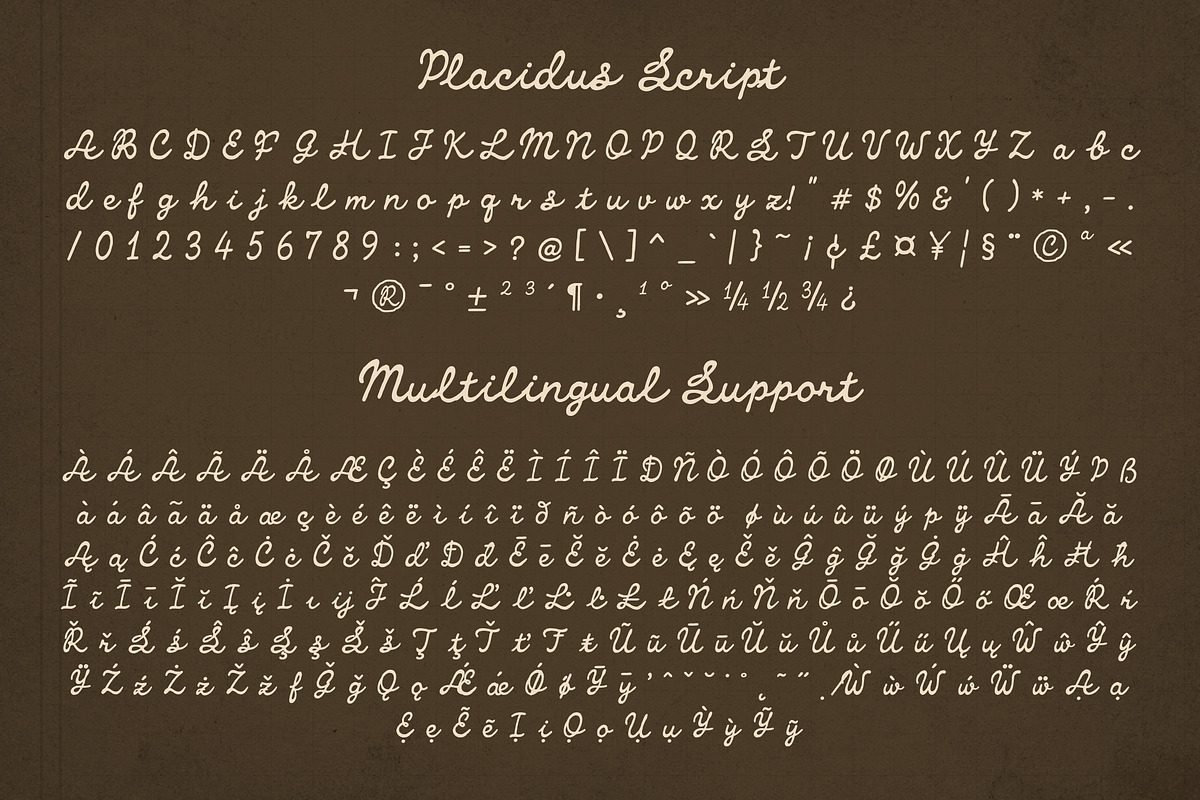 Placidus Script
A B C D E F G H I J K L M N O P Q R S T U V W X Y Z a b c
d e f g h i j k l m n o p q r s t u v w x y z ! " # $ % & ' ( ) * + , - .
/ 0 1 2 3 4 5 6 7 8 9 : ; < = > ? @ [ \ ] ^ _ ` | } ~ ¡ ¢ £ ¤ ¥ ¦ § ¨ © ª «
¬ ® ¯ ° ± ² ³ ´ ¶ · ¸ ¹ º » ¼ ½ ¾ ¿
Multilingual Support
À Á Â Ã Ä Å Æ Ç È É Ê Ë Ì Í Î Ï Ð Ñ Ò Ó Ô Õ Ö Ø Ù Ú Û Ü Ý Þ ß
à á â ã ä å æ ç è é ê ë ì í î ï ð ñ ò ó ô õ ö ø ù ú û ü ý þ ÿ Ā ā Ă ă
Ą ą Ć ć Ĉ ĉ Ċ ċ Č č Ď ď Đ đ Ē ē Ĕ ĕ Ė ė Ę ę Ě ě Ĝ ĝ Ğ ğ Ġ ġ Ĥ ĥ Ħ ħ
Ĩ ĩ Ī ī Ĭ ĭ Į į İ ı ij Ĵ Ĺ ĺ Ľ ľ Ŀ ŀ Ł ł Ń ń Ň ň Ō ō Ŏ ŏ Ő ő Œ œ Ŕ ŕ
Ř ř Ś ś Ŝ ŝ Ş ş Š š Ţ ţ Ť ť Ŧ ŧ Ũ ũ Ū ū Ŭ ŭ Ů ů Ű ű Ų ų Ŵ ŵ Ŷ ŷ
Ÿ Ź ź Ż ż Ž ž f Ǧ ǧ Ǫ ǫ Ǽ ǽ Ǿ ǿ Ȳ ȳ ʼ ˆ ˇ ˘ ˙ ˚ ˛ ˜ ˝ ̣ Ẁ ẁ Ẃ ẃ Ẅ ẅ Ạ ạ
Ẹ ẹ Ẽ ẽ Ị ị Ọ ọ Ụ ụ Ỳ ỳ Ỹ ỹ